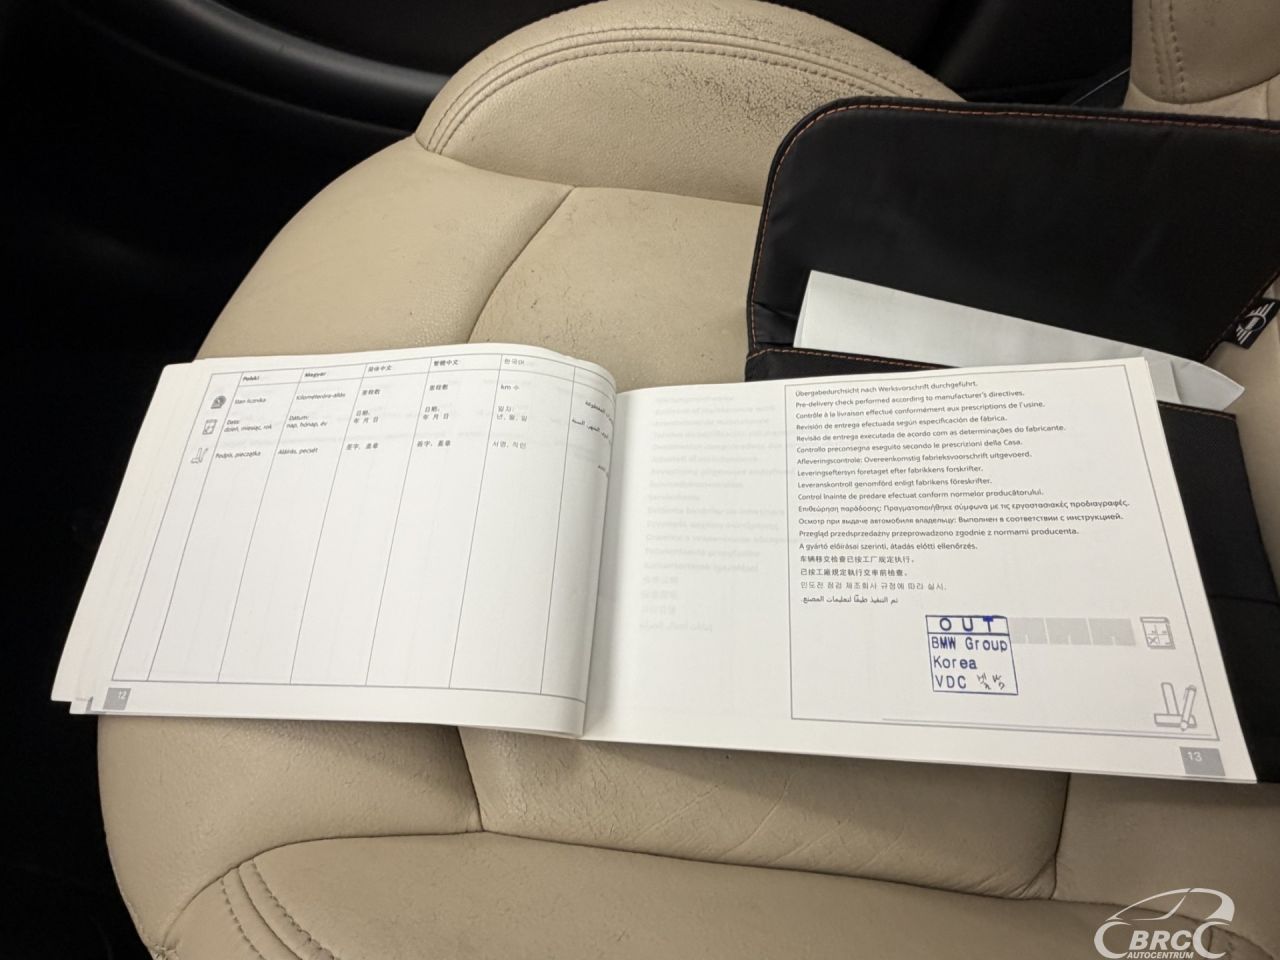 Polski
Magyar
简体中文
繁體中文
한국어
Stan licznika
Kilométeróra-állás
里程数
里程數
km 수
Data:
dzień, miesiąc, rok
Dátum:
nap, hónap, év
日期:
年 月 日
日期:
年 月 日
일자:
년, 월, 일
Podpis, pieczątka
Aláírás, pecsét
签字, 盖章
簽字, 蓋章
서명, 직인
12
Übergabedurchsicht nach Werksvorschrift durchgeführt.
Pre-delivery check performed according to manufacturer's directives.
Contrôle à la livraison effectué conformément aux prescriptions de l'usine.
Revisión de entrega efectuada según especificación de fábrica.
Revisão de entrega executada de acordo com as determinações do fabricante.
Controllo preconsegna eseguito secondo le prescrizioni della Casa.
Afleveringscontrole: Overeenkomstig fabrieksvoorschrift uitgevoerd.
Leveringseftersyn foretaget efter fabrikkens forskrifter.
Leveranskontroll genomförd enligt fabrikens föreskrifter.
Control înainte de predare efectuat conform normelor producătorului.
Επιθεώρηση παράδοσης: Πραγματοποιήθηκε σύμφωνα με τις εργοστασιακές προδιαγραφές.
Осмотр при выдаче автомобиля владельцу: Выполнен в соответствии с инструкцией.
Przegląd przedsprzedażny przeprowadzono zgodnie z normami producenta.
A gyártó előírásai szerinti, átadás előtti ellenőrzés.
车辆移交检查已按工厂规定执行。
已按工廠規定執行交車前檢查。
인도전 점검 제조회사 규정에 따라 실시.
تم التنفيذ طبقًا لتعليمات المصنع.
OUT
BMW Group
Korea
VDC
13
BRC
AUTOCENTRUM